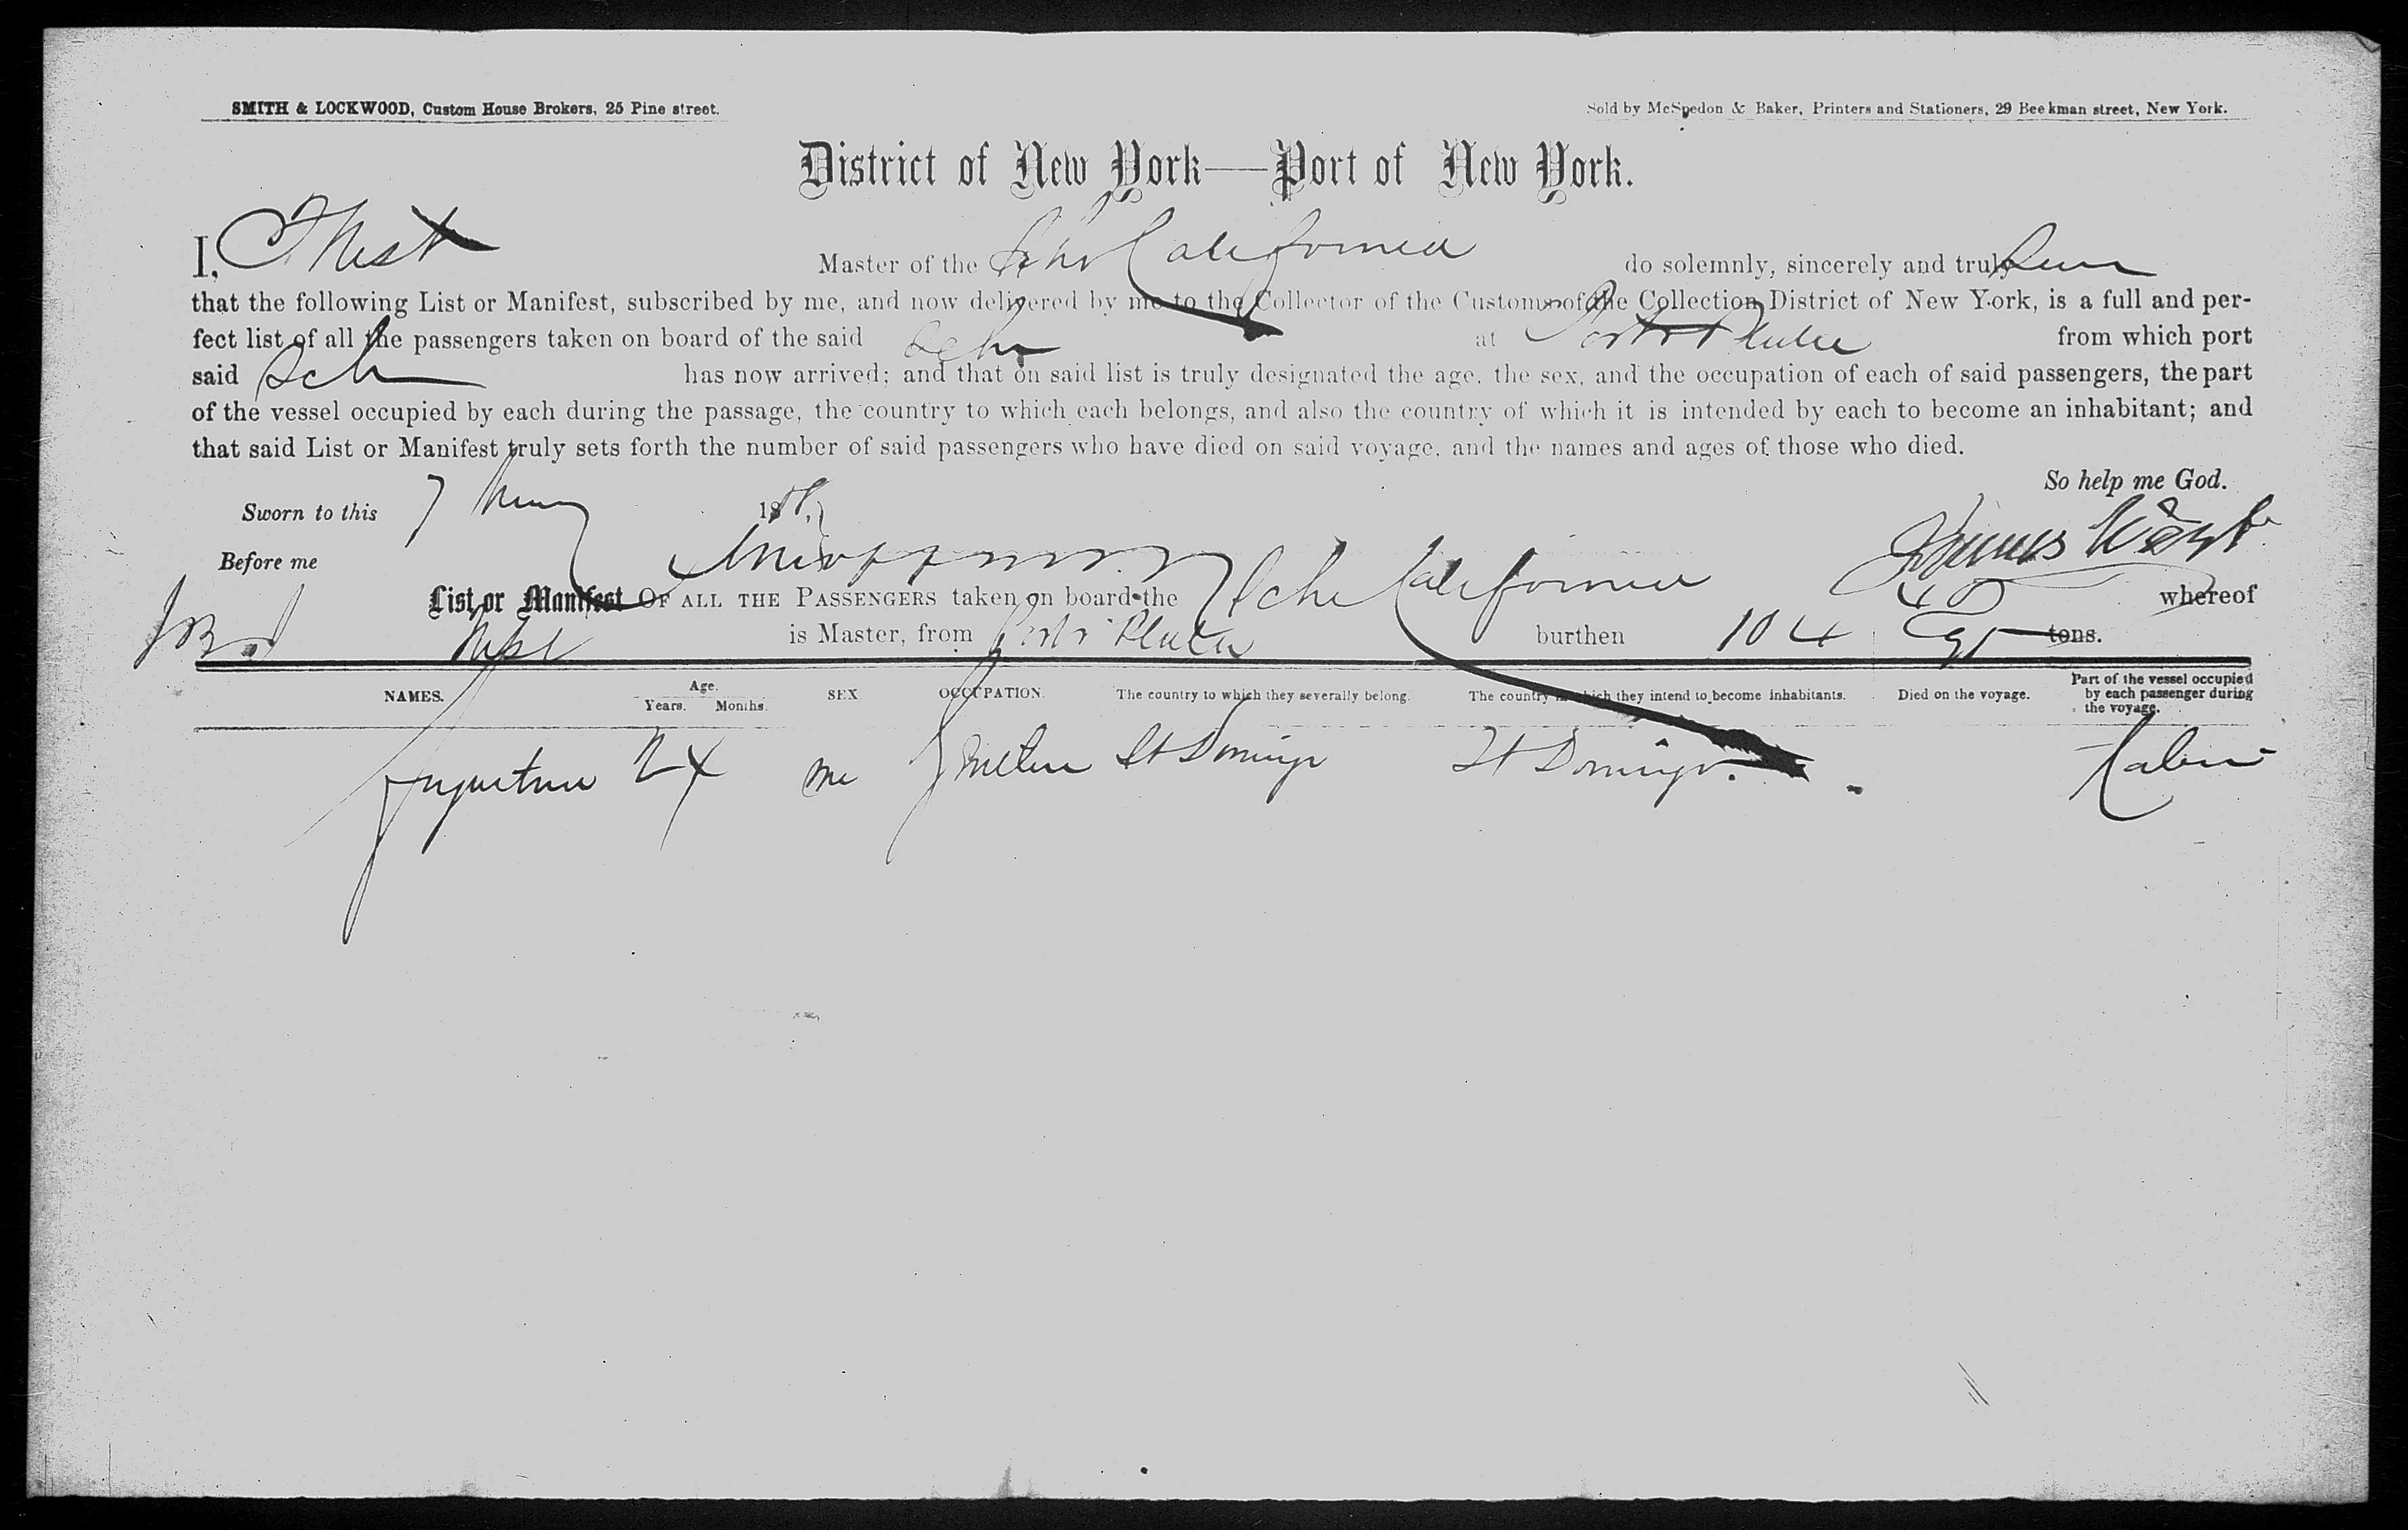 SMITH & LOCKWOOD, Custom House Brokers, 25 Pine street.
Sold by McSpedon & Baker, Printers and Stationers, 29 Beekman street, New York.
District of New York—Port of New York.
I, West Master of the Schr California do solemnly, sincerely and truly
that the following List or Manifest, subscribed by me, and now delivered by me to the Collector of the Customs of the Collection District of New York, is a full and per-
fect list of all the passengers taken on board of the said Schr at Porto Plata from which port
said Sch has now arrived; and that on said list is truly designated the age, the sex, and the occupation of each of said passengers, the part
of the vessel occupied by each during the passage, the country to which each belongs, and also the country of which it is intended by each to become an inhabitant; and
that said List or Manifest truly sets forth the number of said passengers who have died on said voyage, and the names and ages of those who died.
So help me God.
Sworn to this 7 18
Before me
List or Manifest OF ALL THE PASSENGERS taken on board the Schr California whereof
West is Master, from Porto Plata burthen 104 tons.
NAMES. Age. Years. Months. SEX OCCUPATION. The country to which they severally belong. The country in which they intend to become inhabitants. Died on the voyage. Part of the vessel occupied by each passenger during the voyage.
24 St Domingo St Domingo. Cabin